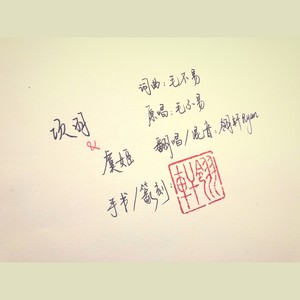 项羽
&
虞姬
词曲：毛不易
原唱：毛不易
翻唱/混音：翎轩Ryan
手书/篆刻：